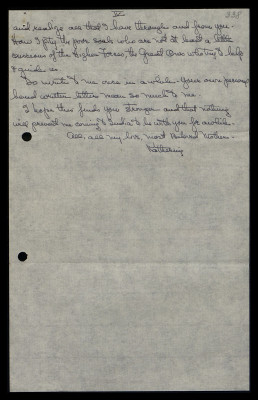 IV
and realize all that I have through and from you.
How I pity the poor souls who are not at least a little
conscious of the Higher Forces, the Great Ones who try to help
& guide us.
Do write to me once in a while. Your own personal
hand written letters mean so much to me.
I hope this finds you stronger and that nothing
will prevent me coming to India to be with you for awhile.
All, all my love, most Beloved Mother.
Katherine